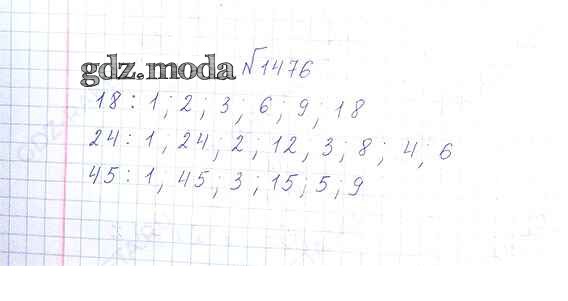 gdz.moda №1476
18 : 1 ; 2 ; 3 ; 6 ; 9 ; 18
24 : 1 , 24 ; 2 ; 12 , 3 ; 8 ; 4 ; 6
45 : 1 , 45 ; 3 ; 15 ; 5 ; 9